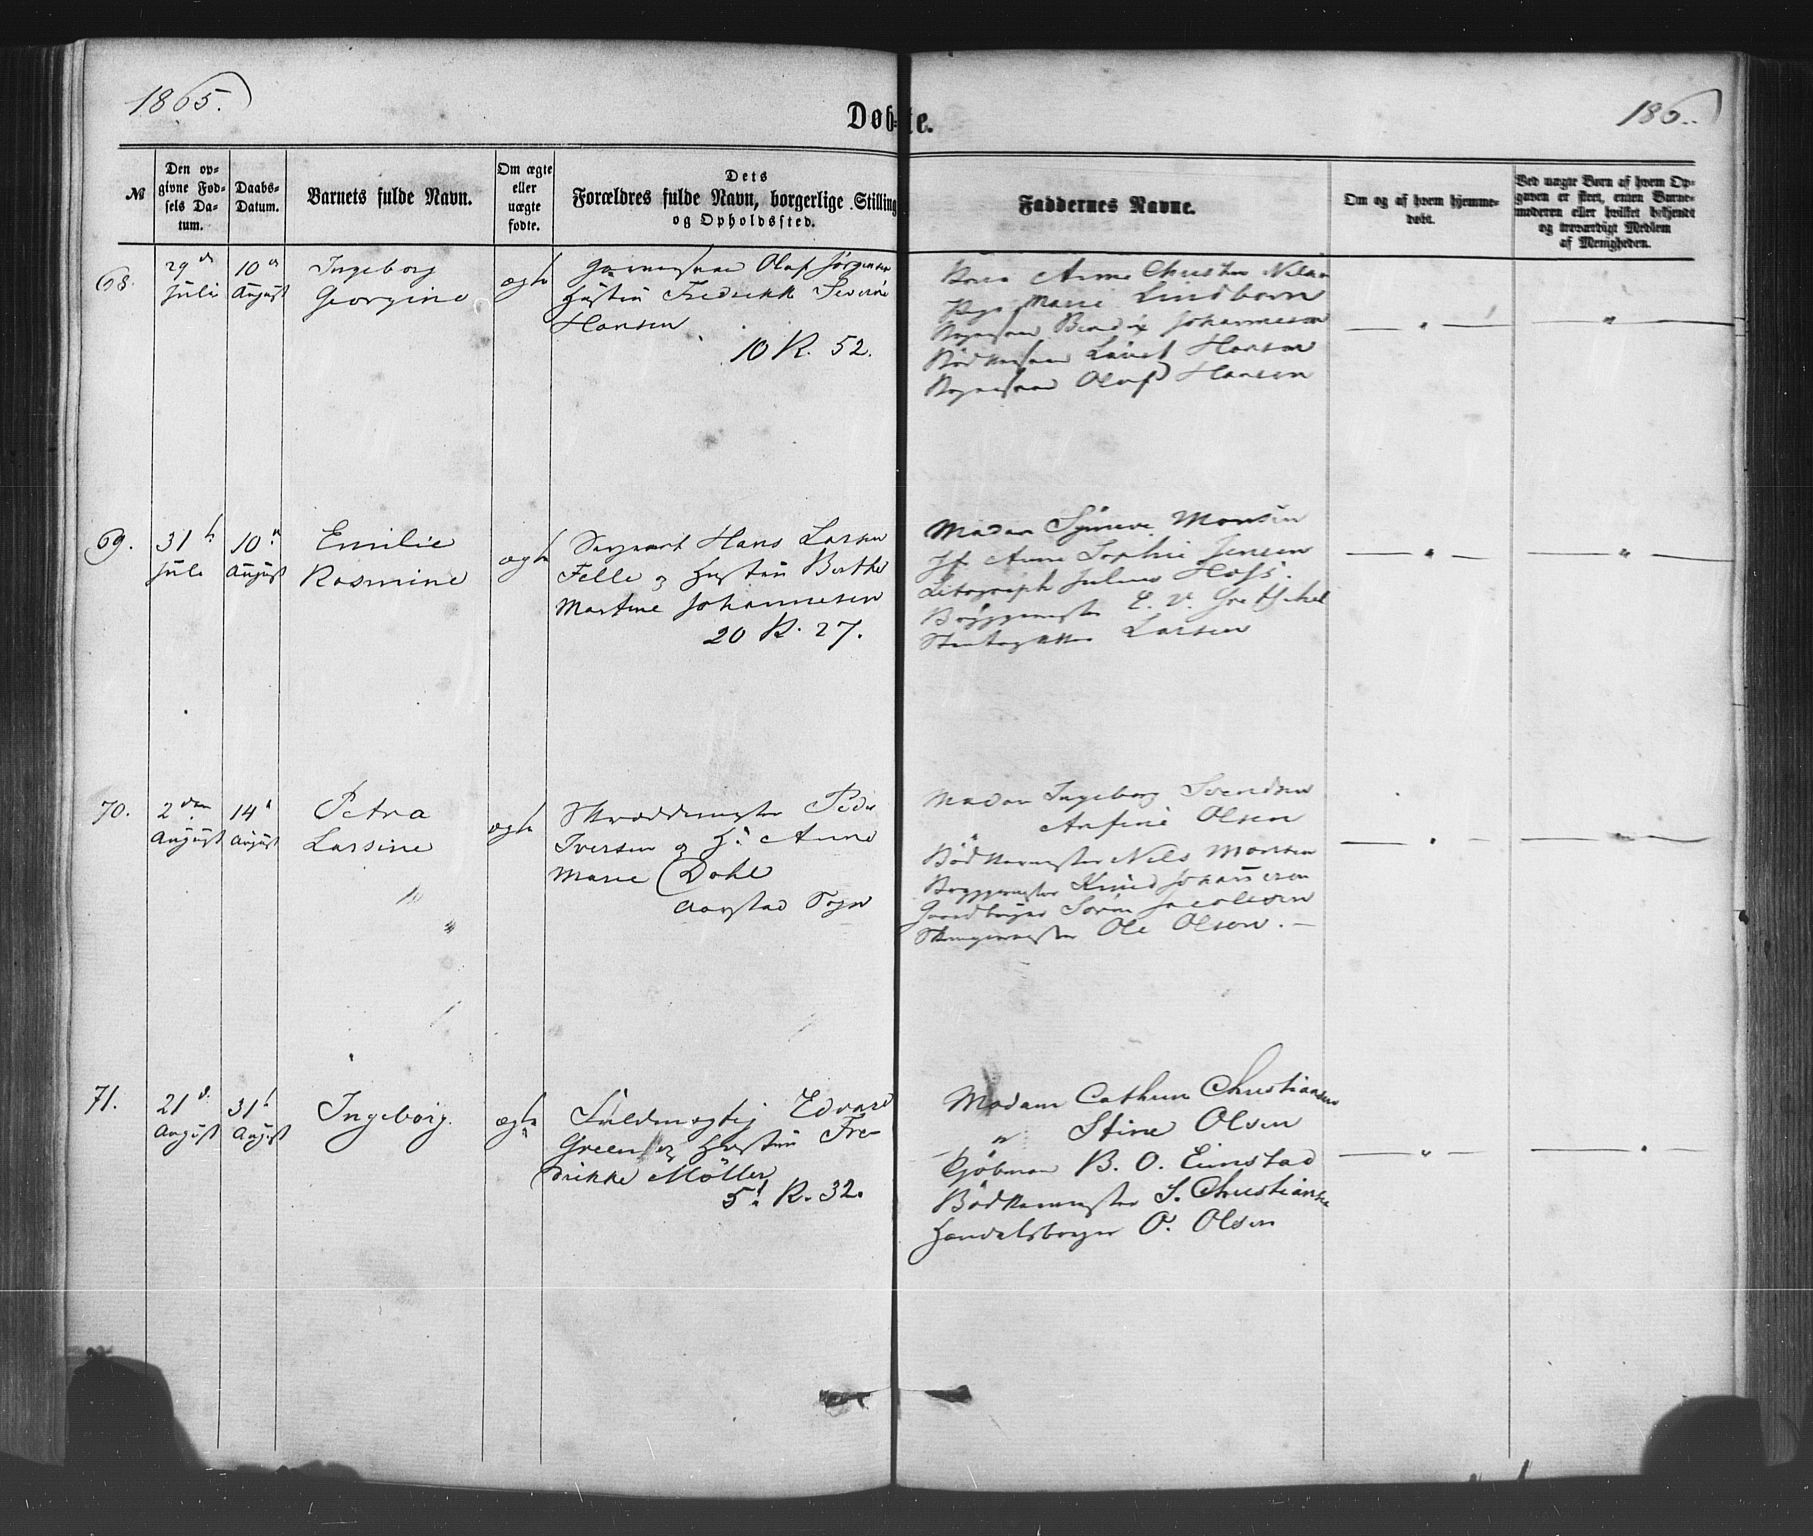 1865.
Døbte.
186..
№
Den op-
givne Fød-
sels Da-
tum.
Daabs-
Datum.
Barnets fulde Navn.
Om ægte
eller
uægte
fødte.
Dets
Forældres fulde Navn, borgerlige Stilling
og Opholdssted.
Faddernes Navne.
Om og af hvem hjemme-
døbt.
Ved uægte Børn af hvem Op-
gaven er skeet, enten Barne-
moderen eller hvilket bekjendt
og troværdigt Medlem
af Menigheden.
68.
29de
Juli
10de
August
Ingeborg
Georgine
ægte
Olaf Jørgensen
Hustru Fredrikke Severine
Hansen
10 R. 52.
Anne Christine Nilsen
Pige Marie Lindborn
Bendix Johannesen
Laurets Hansen
Olaf Hansen
69.
31te
Juli
10de
August
Emilie
Rasmine
ægte
Sergeant Hans Larsen
Felle og Hustru Berthe
Martine Johannesen
20 R. 27.
Madam Synneve Monsen
Jf. Anne Sophie Jensen
Litograph Julius Hoff.
E. V.
Larsen
70.
2den
August
14de
August
Petra
Larsine
ægte
Skræddermester Peder
Iversen og H. Anne
Marie Dahl
Aarstad Sogn
Madam Ingeborg Svendsen
Anfine Olsen
Bødkermester Nils Monsen
Knud Johannesen
Søren Jacobsen
Ole Olsen. —
71.
21de
August
31te
August
Ingeborg.
ægte
Fuldmægtig Edvard
Green og Hustru Fre-
drikke Møller
5! R. 32.
Madam Cathrine Christiansen
" Stine Olsen
Kjøbman B. O. Eimstad
Bødkermester S. Christiansen
Handelsborger O. Olsen